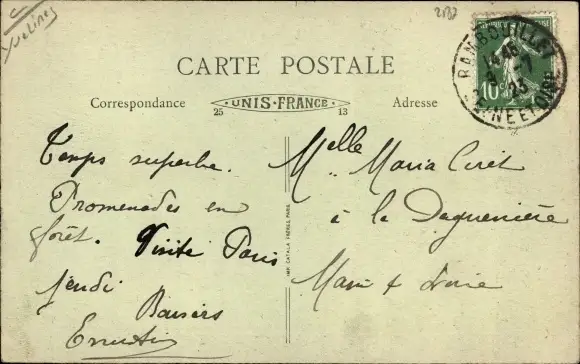 Yvelines
2837
CARTE POSTALE
Correspondance
UNIS-FRANCE
25 13
Adresse
RAMBOUILLET
14 45
8 -7
23
SEINE ET OISE
10
Temps superbe.
Promenades en
forêt. Visite Paris
jeudi
Baisers
Ernestine
IMP. CATALA FRÈRES, PARIS
Melle Maria Ciret
à la Daguenière
Maine & Loire